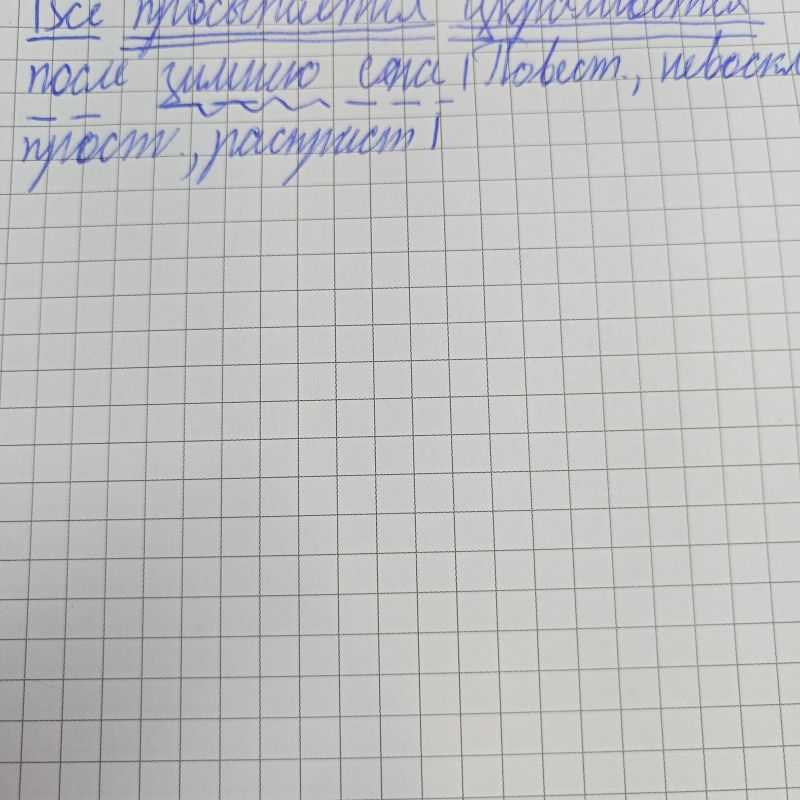 Все просыпается
после зимнего сна | Повест., невоскл
прост., распрост |